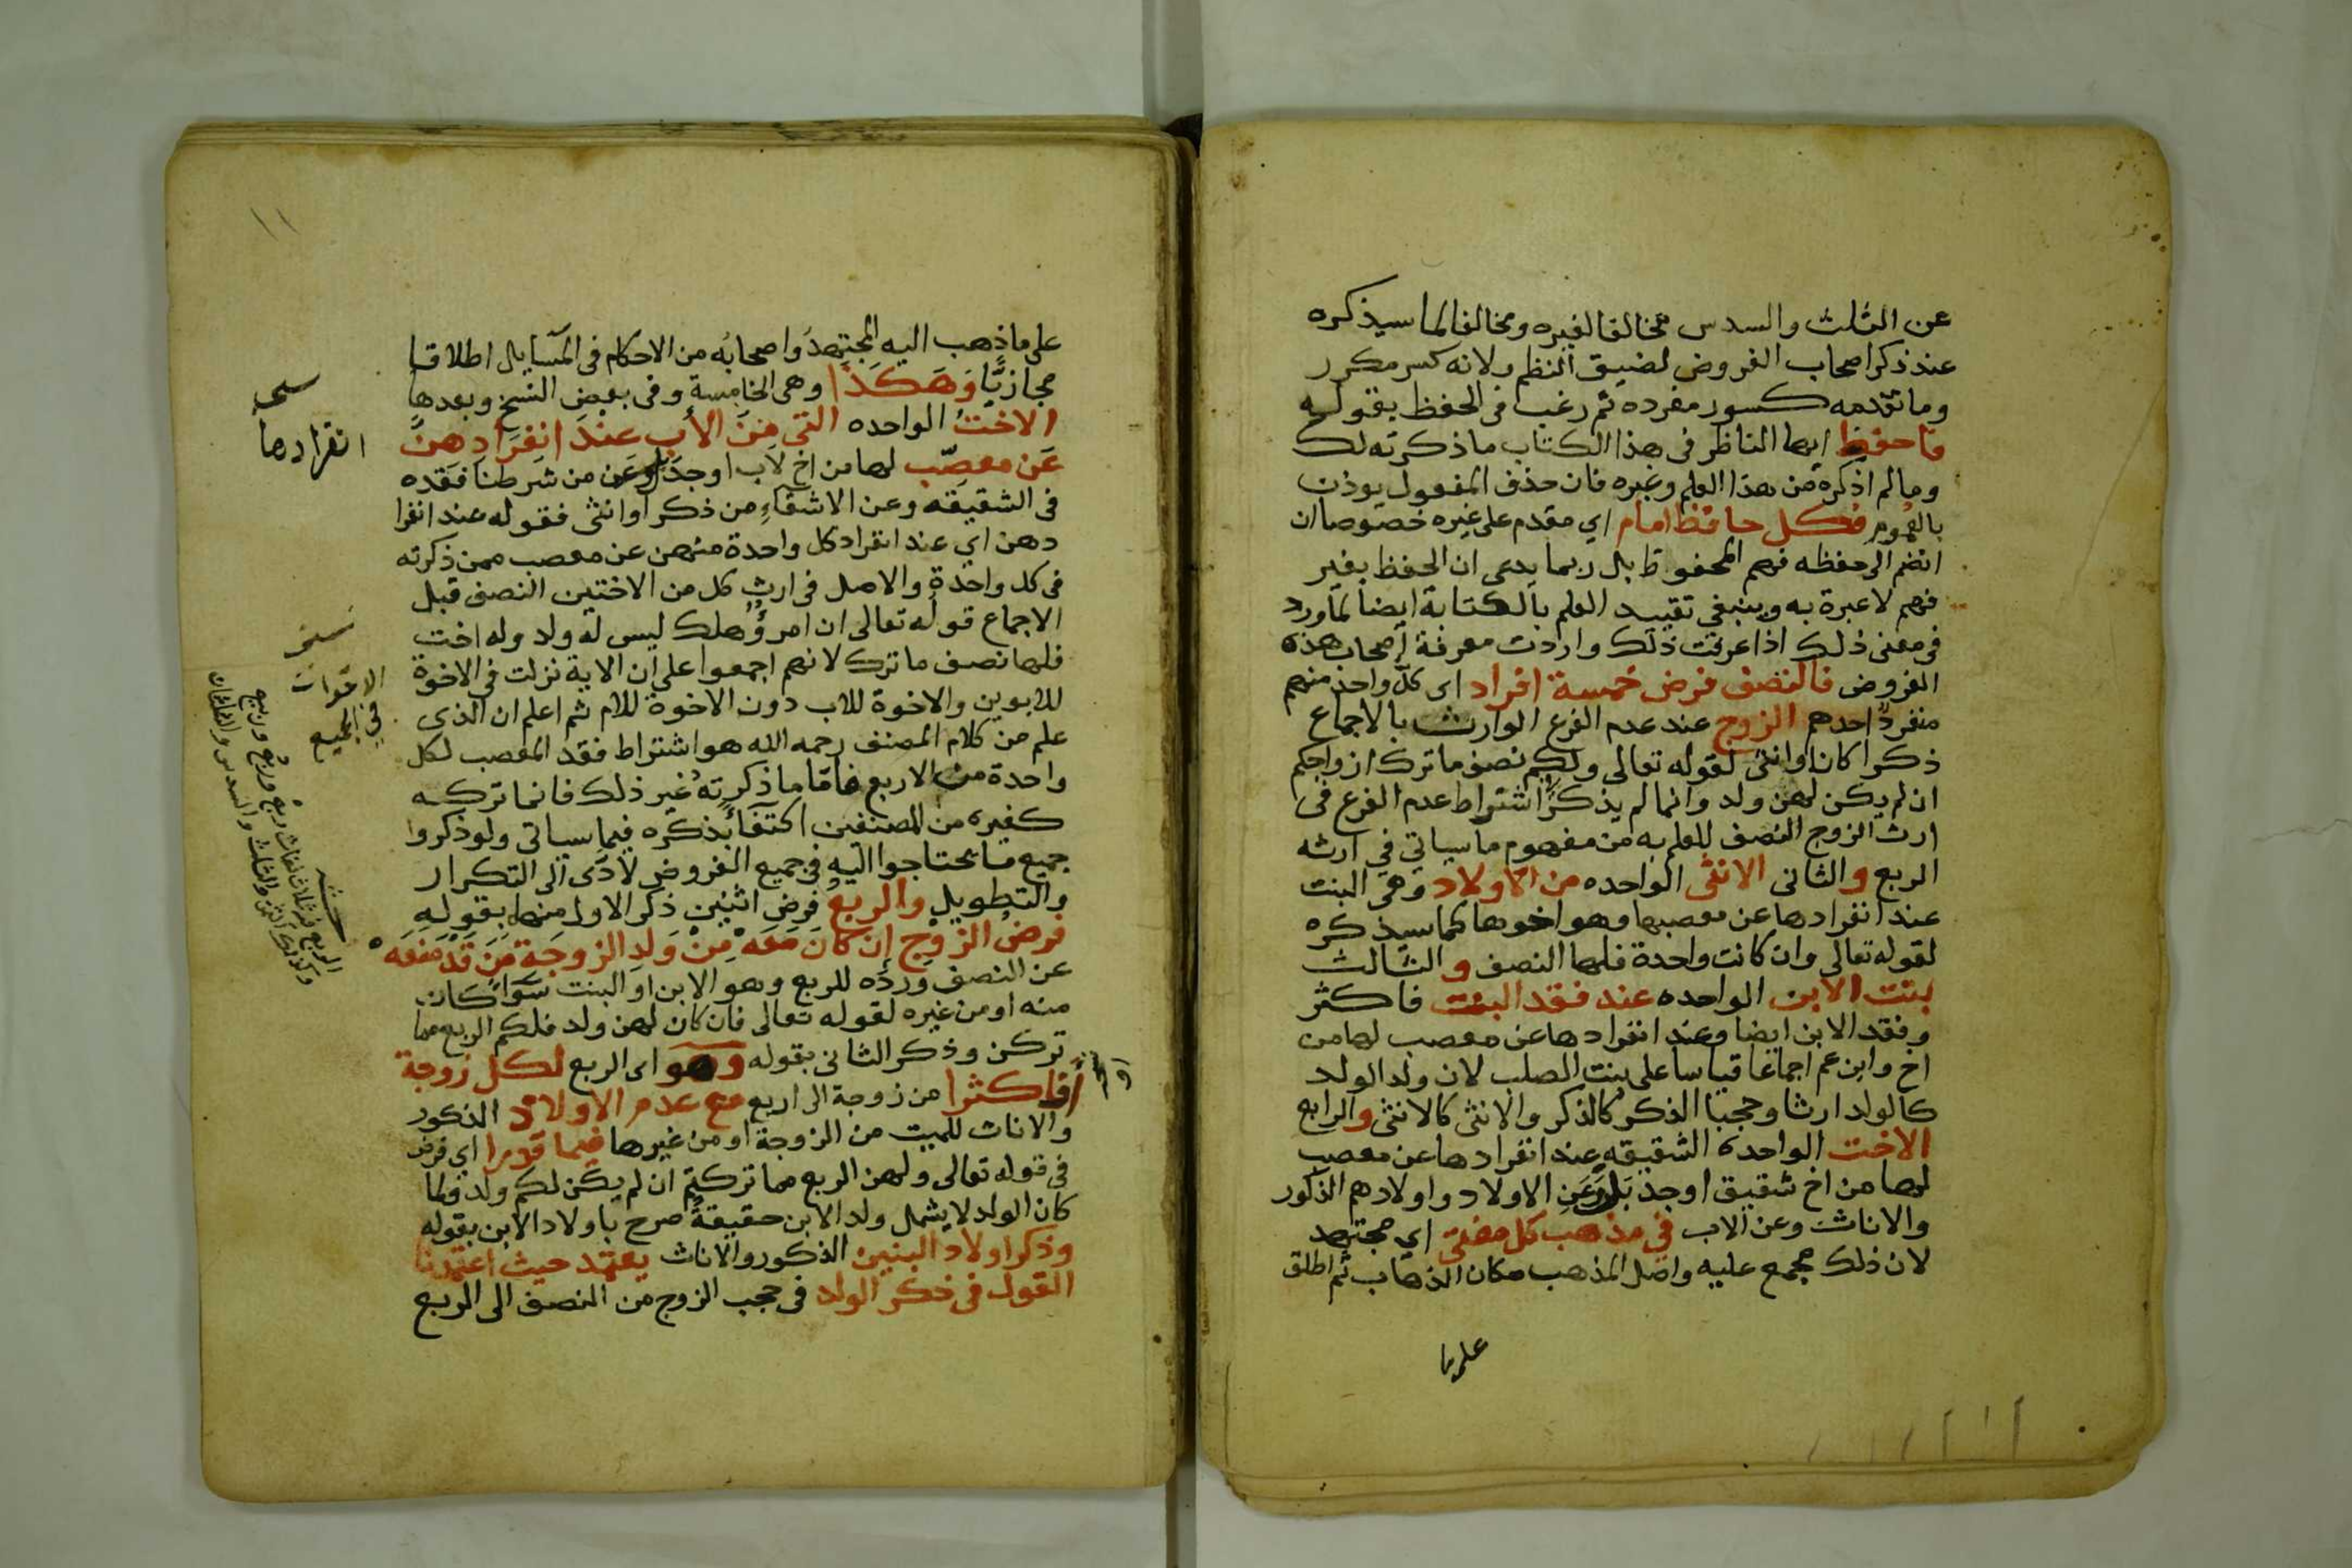 عن الثلث والسدس مخالفا لغيره ومخالفا لما سيذكره
عند ذكر اصحاب الفروض لضيق النظم ولانه كسر مكرر
وما تقدمه كسور مفرده ثم رغب فى الحفظ بقوله
فاحفظ ايها الناظر فى هذا الكتاب ما ذكرته لك
وما لم اذكره من هذا العلم وغيره فان حذف المفعول يوذن
بالعموم فكل حافظ امام اي مقدم على غيره خصوصا ان
انضم الى حفظه فهم المحفوظ بل ربما يدعى ان الحفظ بغير
فهم لا عبرة به وينبغى تقييد العلم بالكتابة ايضا لما ورد
فى معنى ذلك اذا عرفت ذلك واردت معرفة اصحاب هذه
الفروض فالنصف فرض خمسة افراد اى كل واحد منهم
منفردا احدهم الزوج عند عدم الفرع الوارث بالاجماع
ذكرا كان او انثى لقوله تعالى ولكم نصف ما ترك ازواجكم
ان لم يكن لهن ولد وانما لم يذكر اشتراط عدم الفرع فى
ارث الزوج النصف للعلم به من مفهوم ما سياتي في ارثه
الربع والثانى الانثى الواحده من الاولاد وهى البنت
عند انفرادها عن معصبها وهو اخوها كما سيذكره
لقوله تعالى وان كانت واحدة فلها النصف والثالث
بنت الابن الواحده عند فقد البنت فاكثر
وفقد الابن ايضا وعند انفرادها عن معصب لها من
اخ وابن عم اجماعا قياسا على بنت الصلب لان ولد الولد
كالولد ارثا وحجبا الذكر كالذكر والانثى كالانثى والرابع
الاخت الواحدة الشقيقه عند انفرادها عن معصب
لها من اخ شقيق او جد بل وعن الاولاد واولادهم الذكور
والاناث وعن الاب في مذهب كل مفتى اي مجتهد
لان ذلك مجمع عليه واصل المذهب مكان الذهاب ثم اطلق
على ما
على ما ذهب اليه المجتهد واصحابه من الاحكام فى المسايل اطلاقا
مجازيا وهكذا وهى الخامسة وفى بعض النسخ وبعدها
الاخت الواحده التى من الأب عند انفرادهن
عن معصب لها من اخ لاب او جد بل وعن من شرطنا فقده
فى الشقيقه وعن الاشقاء من ذكر او انثى فقوله عند انفرا
دهن اي عند انفراد كل واحدة منهن عن معصب ممن ذكرته
فى كل واحدة والاصل فى ارث كل من الاختين النصف قبل
الاجماع قوله تعالى ان امرؤ هلك ليس له ولد وله اخت
فلها نصف ما ترك لانهم اجمعوا على ان الاية نزلت في الاخوة
للابوين والاخوة للاب دون الاخوة للام ثم اعلم ان الذى
علم من كلام المصنف رحمه الله هو اشتراط فقد المعصب لكل
واحدة من الاربع فاما ما ذكرته غير ذلك فانما تركه
كغيره من المصنفين اكتفاء بذكره فيما سياتى ولو ذكروا
جميع ما يحتاجوا اليه في جميع الفروض لادى الى التكرار
والتطويل والربع فرض اثنين ذكر الاول منها بقوله
فرض الزوج إن كان معه من ولد الزوجة من قد منعه
عن النصف ورده للربع وهو الابن او البنت سواء كان
منه او من غيره لقوله تعالى فان كان لهن ولد فلكم الربع مما
تركن وذكر الثانى بقوله وهو اى الربع لكل زوجة
فاكثرا من زوجة الى اربع مع عدم الاولاد الذكور
والاناث للميت من الزوجة او من غيرها فيما قدرا اي فرض
فى قوله تعالى ولهن الربع مما تركتم ان لم يكن لكم ولد ولما
كان الولد لا يشمل ولد الابن حقيقة صرح باولاد الابن بقوله
وذكر اولاد البنين الذكور والاناث يعتمد حيث اعتمدنا
القول فى ذكر الولد فى حجب الزوج من النصف الى الربع
١١
انفرادها
الاخوات
في الجميع